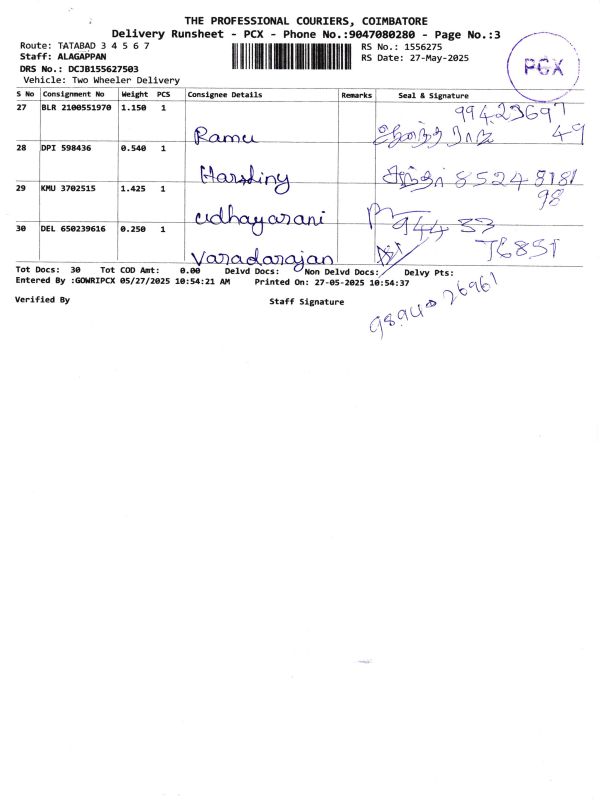 THE PROFESSIONAL COURIERS, COIMBATORE
Delivery Runsheet - PCX - Phone No.:9047080280 - Page No.:3
Route: TATABAD 3 4 5 6 7
RS No.: 1556275
Staff: ALAGAPPAN
RS Date: 27-May-2025
PCX
DRS No.: DCJB155627503
Vehicle: Two Wheeler Delivery
S No Consignment No Weight PCS Consignee Details Remarks Seal & Signature
27 BLR 2100551970 1.150 1
99423697
Ramu
49
28 DPI 598436 0.540 1
Harshiny
8524 8181
98
29 KMU 3702515 1.425 1
udhayarani
944 33
30 DEL 650239616 0.250 1
76851
Varadarajan
Tot Docs: 30 Tot COD Amt: 0.00 Delvd Docs: Non Delvd Docs: Delvy Pts:
Entered By :GOWRIPCX 05/27/2025 10:54:21 AM Printed On: 27-05-2025 10:54:37
Verified By Staff Signature
98940 26961